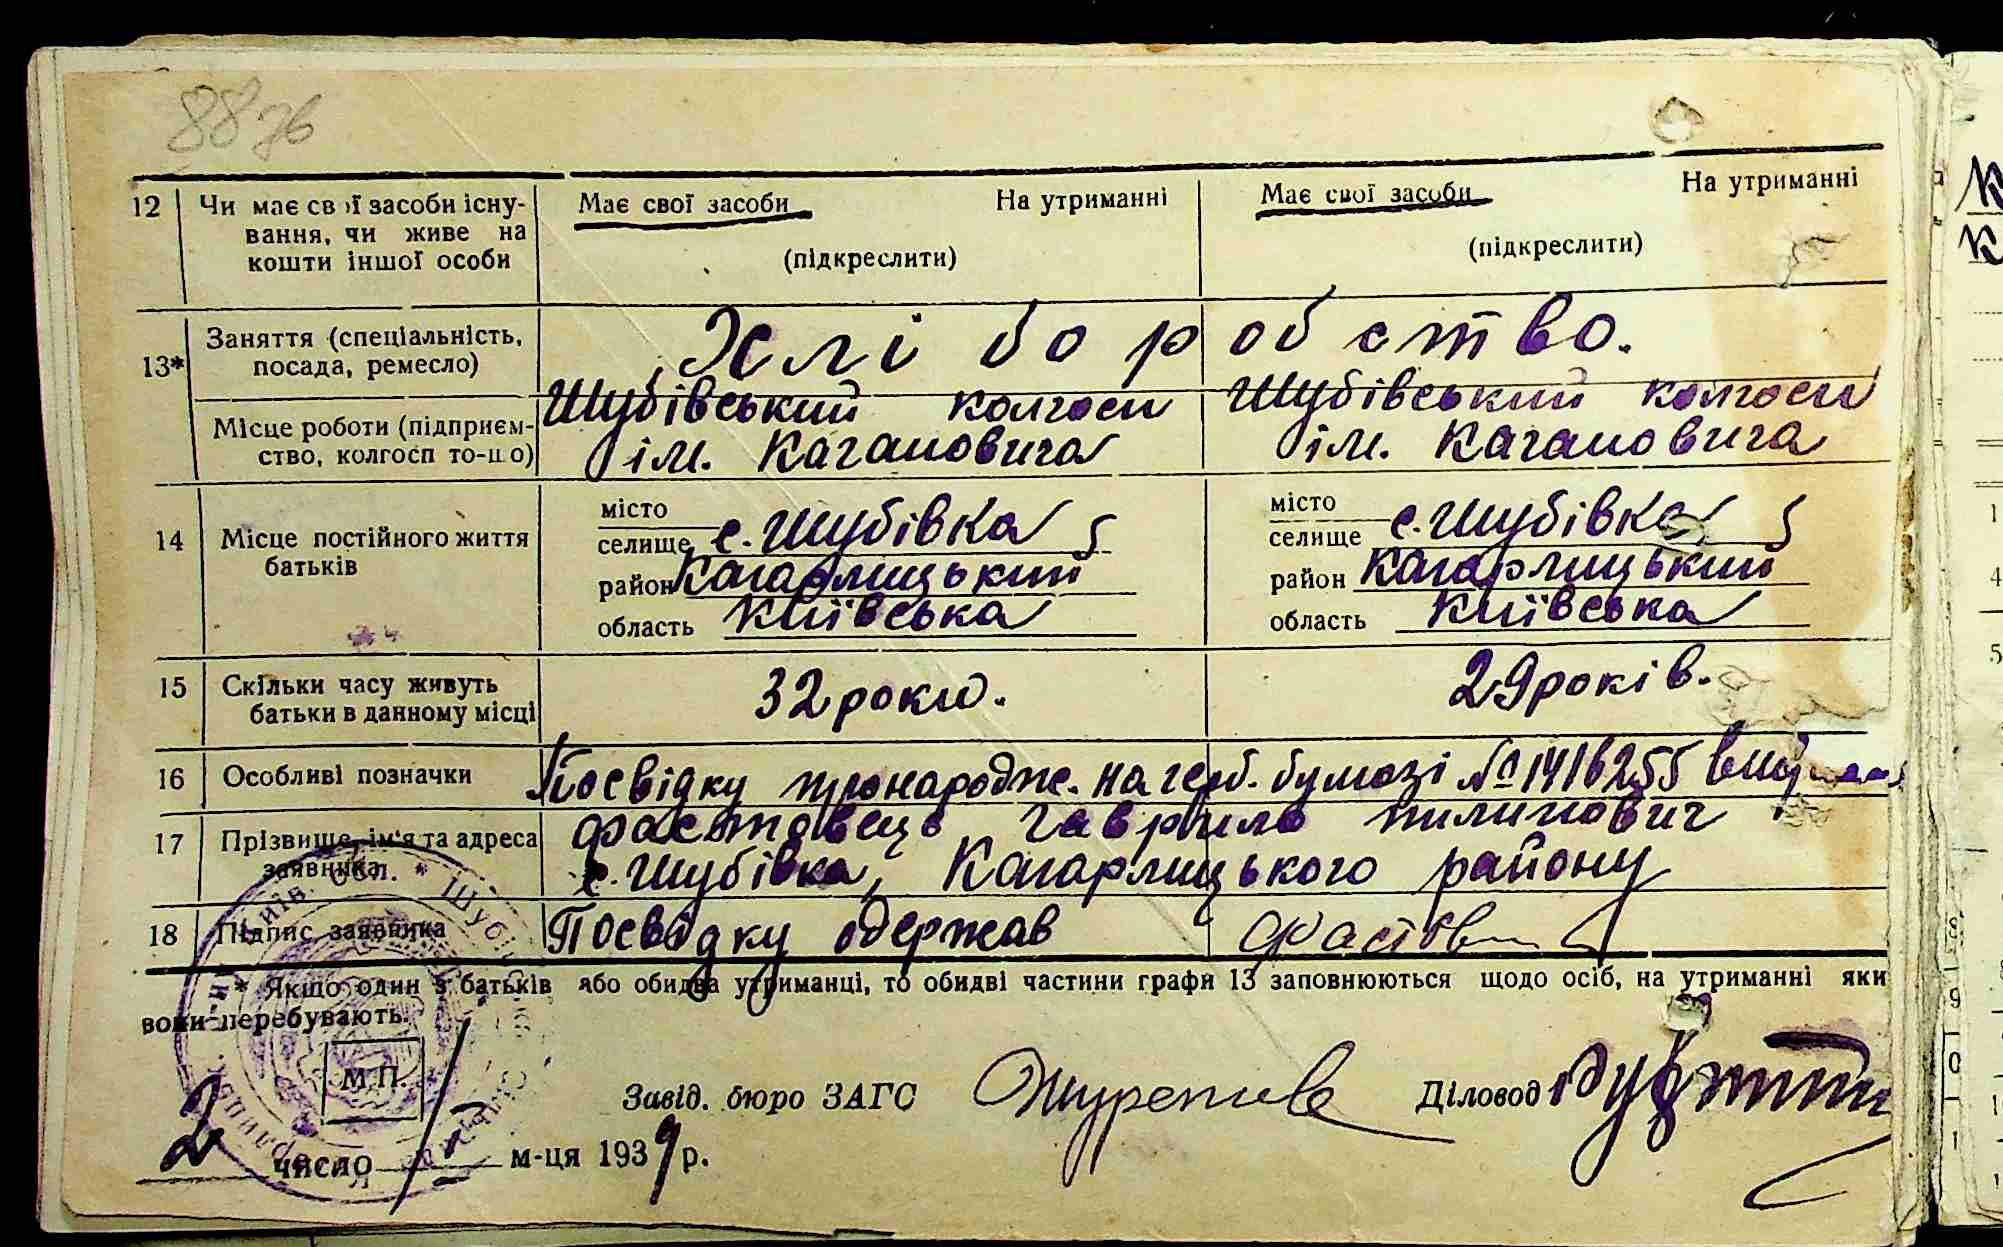 88зв
12 Чи має свої засоби існу- Має свої засоби На утриманні Має свої засоби На утриманні
вання, чи живе на
кошти іншої особи (підкреслити) (підкреслити)
13* Заняття (спеціальність, Хліборобство.
посада, ремесло)
Місце роботи (підприєм- Шубівський колгосп Шубівський колгосп
ство, колгосп то-що) ім. Кагановича ім. Кагановича
14 Місце постійного життя батьків
місто місто
селище с. Шубівка селище с. Шубівка
район Кагарлицький район Кагарлицький
область Київська область Київська
15 Скільки часу живуть 32 роки. 29 років.
батьки в данному місці
16 Особливі позначки Посвідку про народже. на герб. бумазі № 1416255
17 Прізвище, ім'я та адреса Фастовець Гаврило Пилипович
заявника с. Шубівка, Кагарлицького району
18 Підпис заявника Посвідку одержав
* Якщо один з батьків або обидва утриманці, то обидві частини графи 13 заповнюються щодо осіб, на утриманні яки
вони перебувають.
М.П.
Завід. бюро ЗАГС Діловод
2 число м-ця 1939 р.